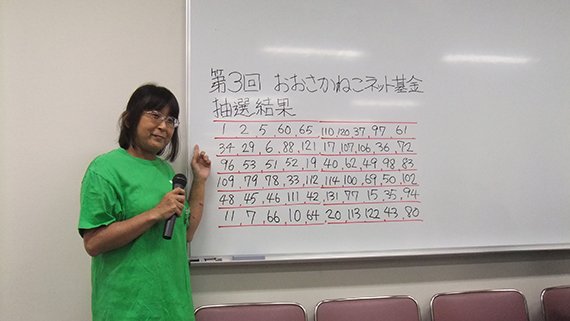 第3回 おおさかねこネット基金
抽選結果
1 2 5 60 65 110,120,37,97 61
34 29 6 88 121 17,107,106,36,72
96 53 51 52 19 40 62 49 98 83
109 79 78 33 112 114 100 69 50 102
48 45 46 111 42 131 77 15 35 94
11 7 66 10 64 20 113 122 43 80